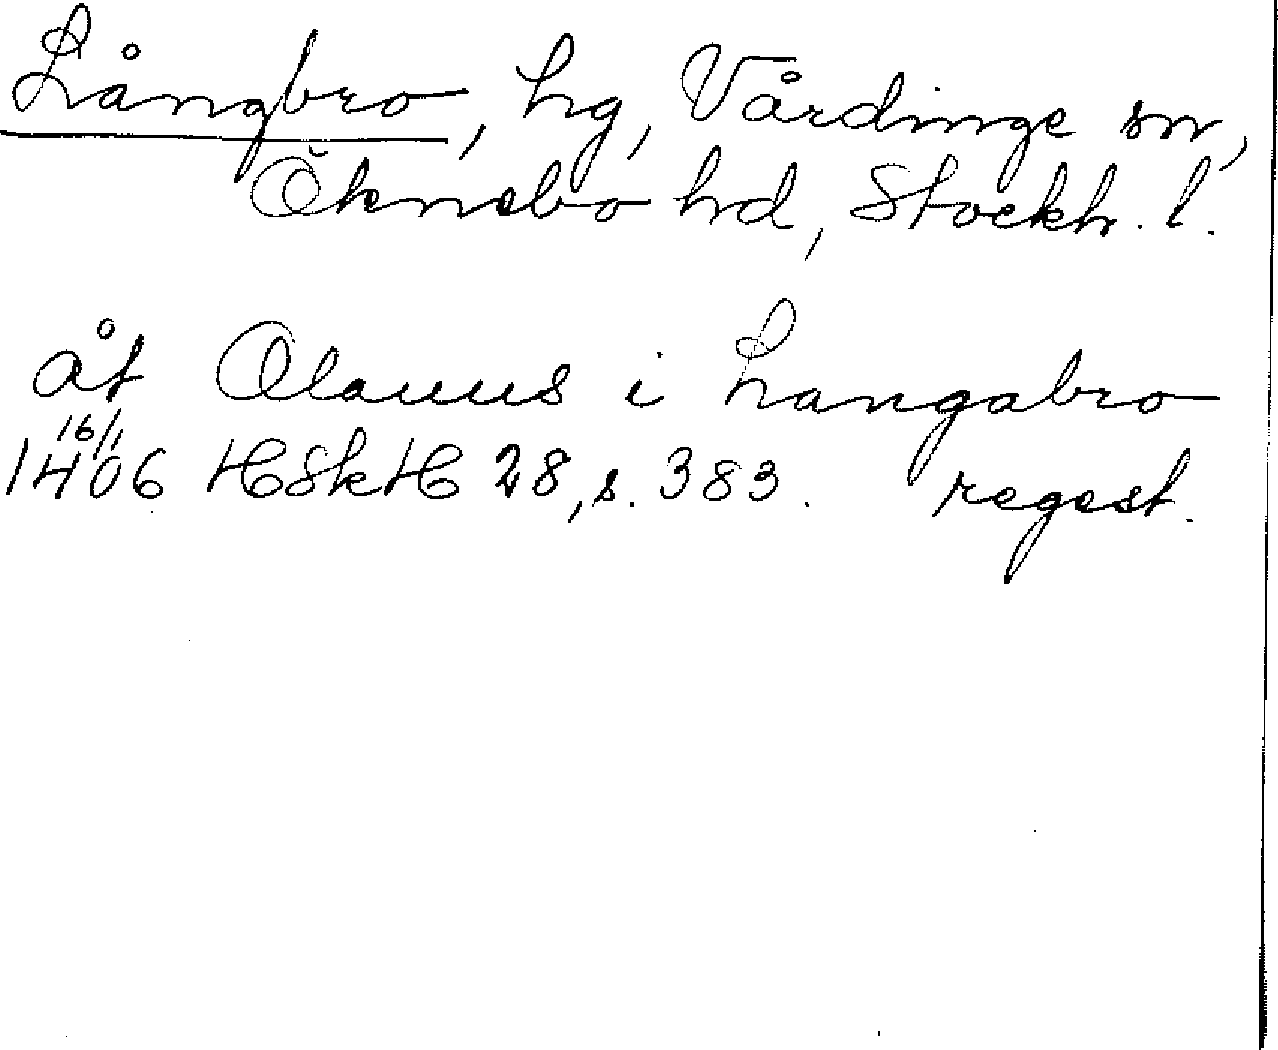 Långbro, hg, Vårdinge sn,
Öknebo hd, Stockh. l.
åt Olauus i Langabro
16/1
1406 HSkH 28, s. 383. regest.